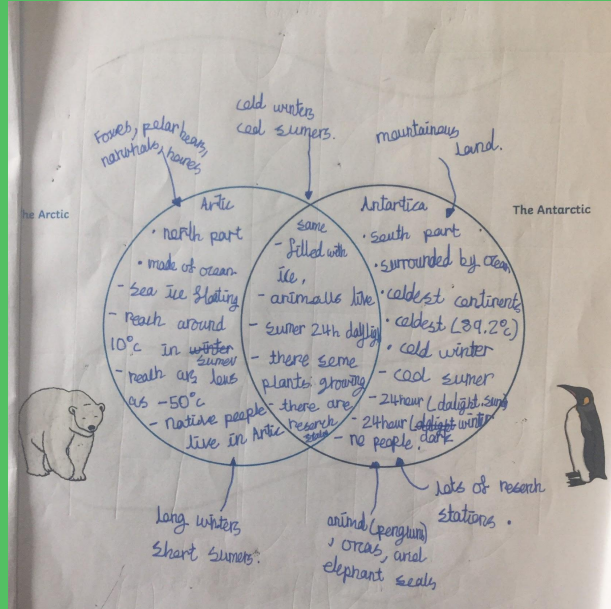 Foxes, polar bears,
narwhals, hares
cold winters
cool sumers.
mountainous
land.
The Arctic
The Antarctic
Artic
• north part
• made of ocean
- sea ice floating
- reach around
10°c in winter
sumer
- reach as lows
as -50°c
- native people
live in Artic
same
- filled with
ice,
- animalls live
- sumer 24h daylig
- there some
plants growing
- there are
reserch
Antartica
• south part
• surrounded by ocean
• coldest continents
• coldest (89.2°c)
• cold winter
- cool sumer
- 24hour (dalight sum)
- 24hour (dalight winter
dark
- no people.
long winters
short sumers.
animal (penguins)
, orcas, and
elephant seals
lots of reserch
stations.